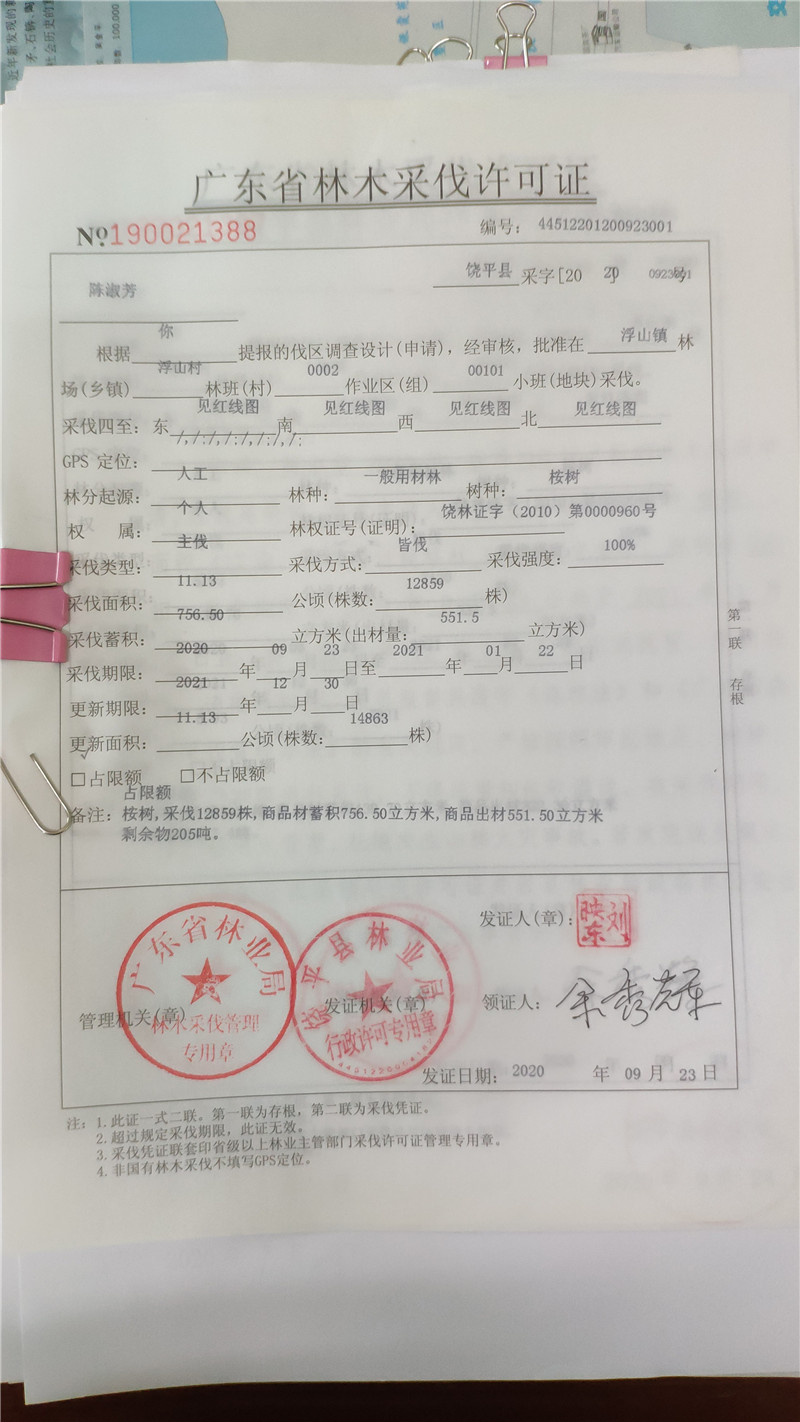 近年新发现的
100.000
广东省林木采伐许可证
№190021388
编号: 44512201200923001
饶平县采字[2020]
陈淑芳
根据你提报的伐区调查设计(申请),经审核,批准在浮山镇林
场(乡镇)浮山村林班(村)0002作业区(组)00101小班(地块)采伐。
采伐四至: 东见红线图南见红线图西见红线图北见红线图
GPS 定位: /,/:/,/:/,/:/,/:
林分起源: 人工 林种: 一般用材林 树种: 桉树
权 属: 个人 林权证号(证明): 饶林证字(2010)第0000960号
采伐类型: 主伐 采伐方式: 皆伐 采伐强度: 100%
采伐面积: 11.13 公顷(株数: 12859 株)
采伐蓄积: 756.50 立方米(出材量: 551.5 立方米)
采伐期限: 2020 年 09 月 23 日至 2021 年 01 月 22 日
更新期限: 2021 年 12 月 30 日
更新面积: 11.13 公顷(株数: 14863 株)
√
□占限额 □不占限额
占限额
备注: 桉树,采伐12859株,商品材蓄积756.50立方米,商品出材551.50立方米
剩余物205吨。
第一联 存根
广东省林业局
林木采伐管理
专用章
管理机关(章)
饶平县林业局
行政许可专用章
发证机关(章)
发证人(章): 刘映东
领证人:
发证日期: 2020 年 09 月 23 日
注: 1.此证一式二联。第一联为存根,第二联为采伐凭证。
2.超过规定采伐期限,此证无效。
3.采伐凭证联套印省级以上林业主管部门采伐许可证管理专用章。
4.非国有林木采伐不填写GPS定位。